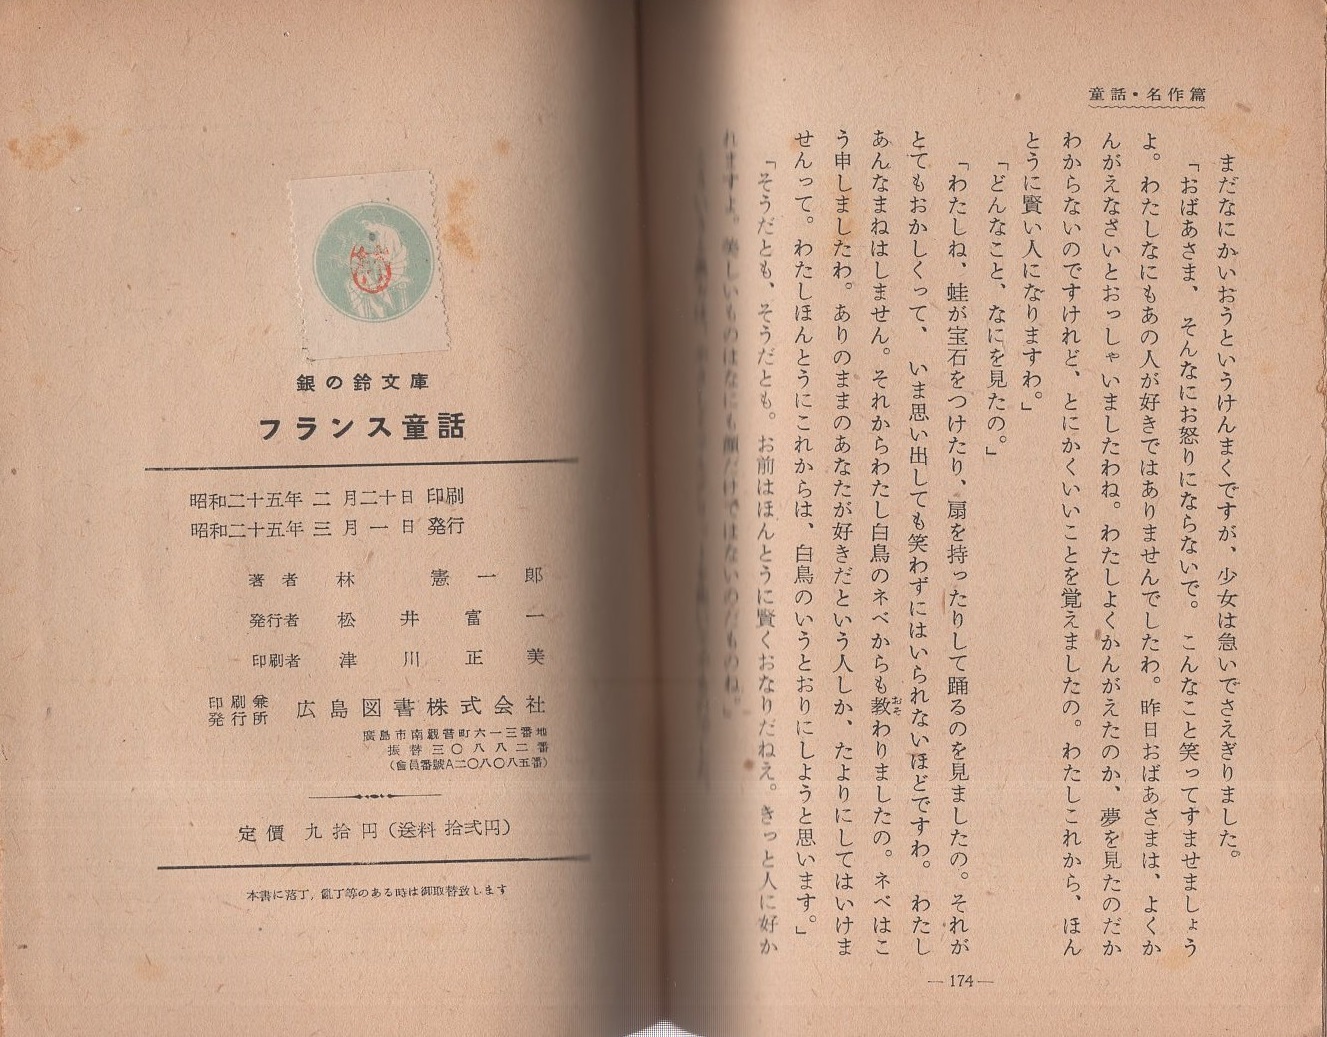 童話・名作篇
まだなにかいおうというけんまくですが、少女は急いでさえぎりました。
「おばあさま、そんなにお怒りにならないで。こんなこと笑ってすませましょう
よ。わたしなにもあの人が好きではありませんでしたわ。昨日おばあさまは、よくか
んがえなさいとおっしゃいましたわね。わたしよくかんがえたのか、夢を見たのだか
わからないのですけれど、とにかくいいことを覚えましたの。わたしこれから、ほん
とうに賢い人になりますわ。」
「どんなこと、なにを見たの。」
「わたしね、蛙が宝石をつけたり、扇を持ったりして踊るのを見ましたの。それが
とてもおかしくって、いま思い出しても笑わずにはいられないほどですわ。わたし
あんなまねはしません。それからわたし白鳥のネベからも教わりましたの。ネベはこ
う申しましたわ。ありのままのあなたが好きだという人しか、たよりにしてはいけま
せんって。わたしほんとうにこれからは、白鳥のいうとおりにしようと思います。」
「そうだとも、そうだとも。お前はほんとうに賢くおなりだねえ。きっと人に好か
れますよ。美しいものはなにも顔だけではないのだものね。」
―174―
銀の鈴文庫
フランス童話
昭和二十五年 二 月二十日 印刷
昭和二十五年 三 月 一 日 発行
著者 林 憲一郎
発行者 松井富一
印刷者 津川正美
印刷兼
発行所 広島図書株式会社
廣島市南観音町六一三番地
振替三〇八八二番
(會員番號A二〇八〇八五番)
定價 九拾円(送料 拾弐円)
本書に落丁, 亂丁等のある時は御取替致します